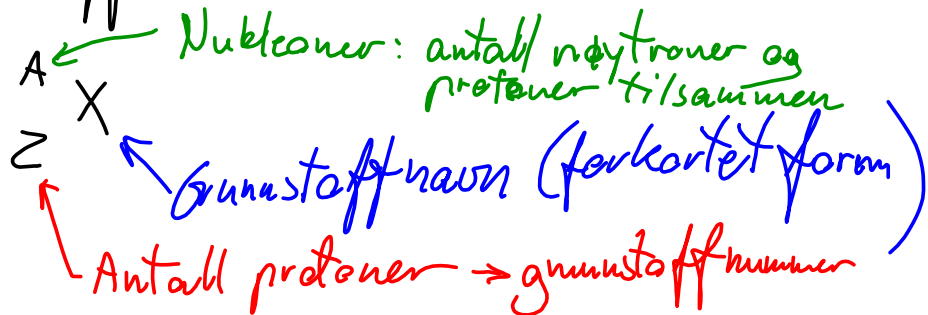 A Nukleoner: antall nøytroner og
protoner tilsammen
X
Z Grunnstoffnavn (forkortet form)
Antall protoner → grunnstoffnummer